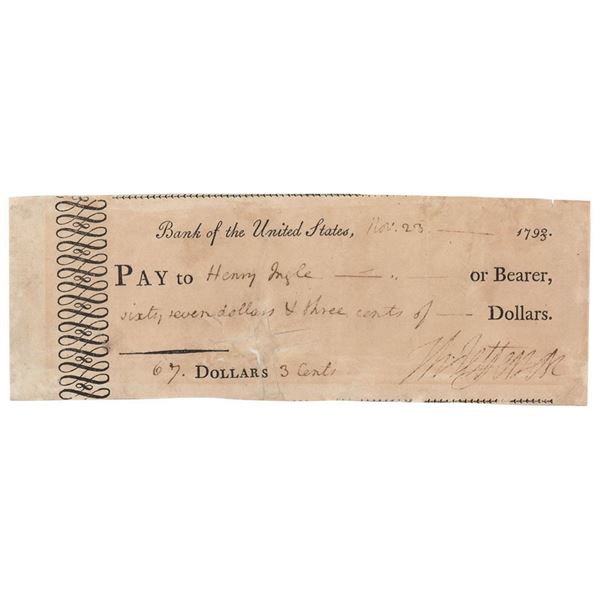 Bank of the United States, Nov. 23 — 1793.
PAY to Henry Ingle — „ — or Bearer,
sixty seven dollars & three cents of — Dollars.
67. DOLLARS 3 Cents
Th: Jefferson